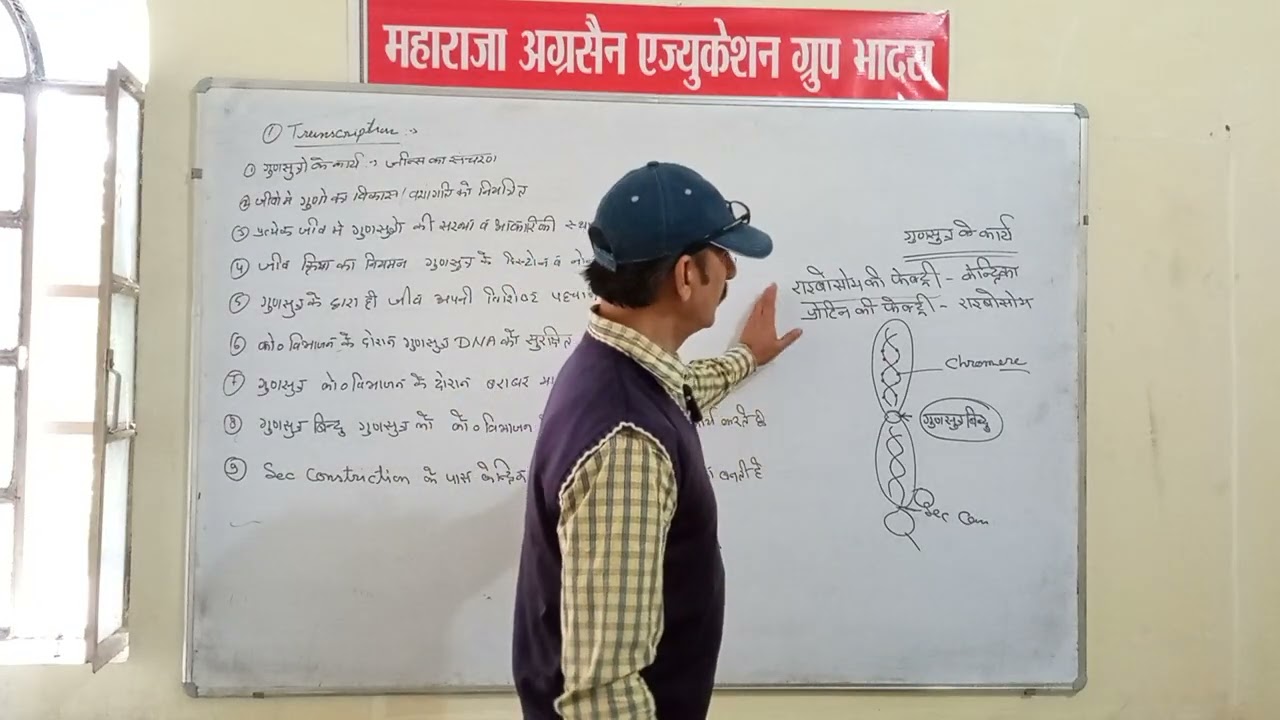 महाराजा अग्रसैन एज्युकेशन ग्रुप भादरा
① Transcription :-
① गुणसुत्रो के कार्य :- जीन्स का संचरण
② जीवो मे गुणो का विकास / वंशागति को नियंत्रित
③ प्रत्येक जीव मे गुणसुत्रो की संख्या व आकारिकी
④ जीव क्रिया का नियमन गुणसुत्र के हिस्टोन व
⑤ गुणसुत्र के द्वारा ही जीव अपनी विशिष्ट
⑥ को० विभाजन के दोरान गुणसुत्र DNA को सुरक्षित
⑦ गुणसुत्र को० विभाजन के दोरान बराबर
⑧ गुणसुत्र बिन्दु गुणसुत्र को को० विभाजन करते है
⑨ Sec Constriction के पास बनती है
गुणसुत्र के कार्य
राइबोसोम की फेक्ट्री - केन्द्रिका
प्रोटिन की फेक्ट्री - राइबोसोम
Chromere
गुणसुत्र बिन्दु
Sec Con